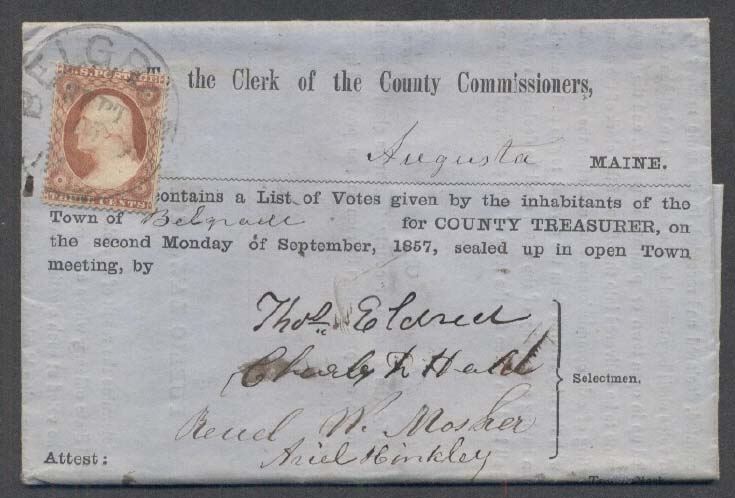 BELGR
U.S. POSTAGE
the Clerk of the County Commissioners,
Augusta MAINE.
contains a List of Votes given by the inhabitants of the
Town of Belgrade for COUNTY TREASURER, on
the second Monday of September, 1857, sealed up in open Town
meeting, by
Thos. Eldred
Hall
Reuel W. Mosher
Selectmen.
Ariel Hinkley
Attest: